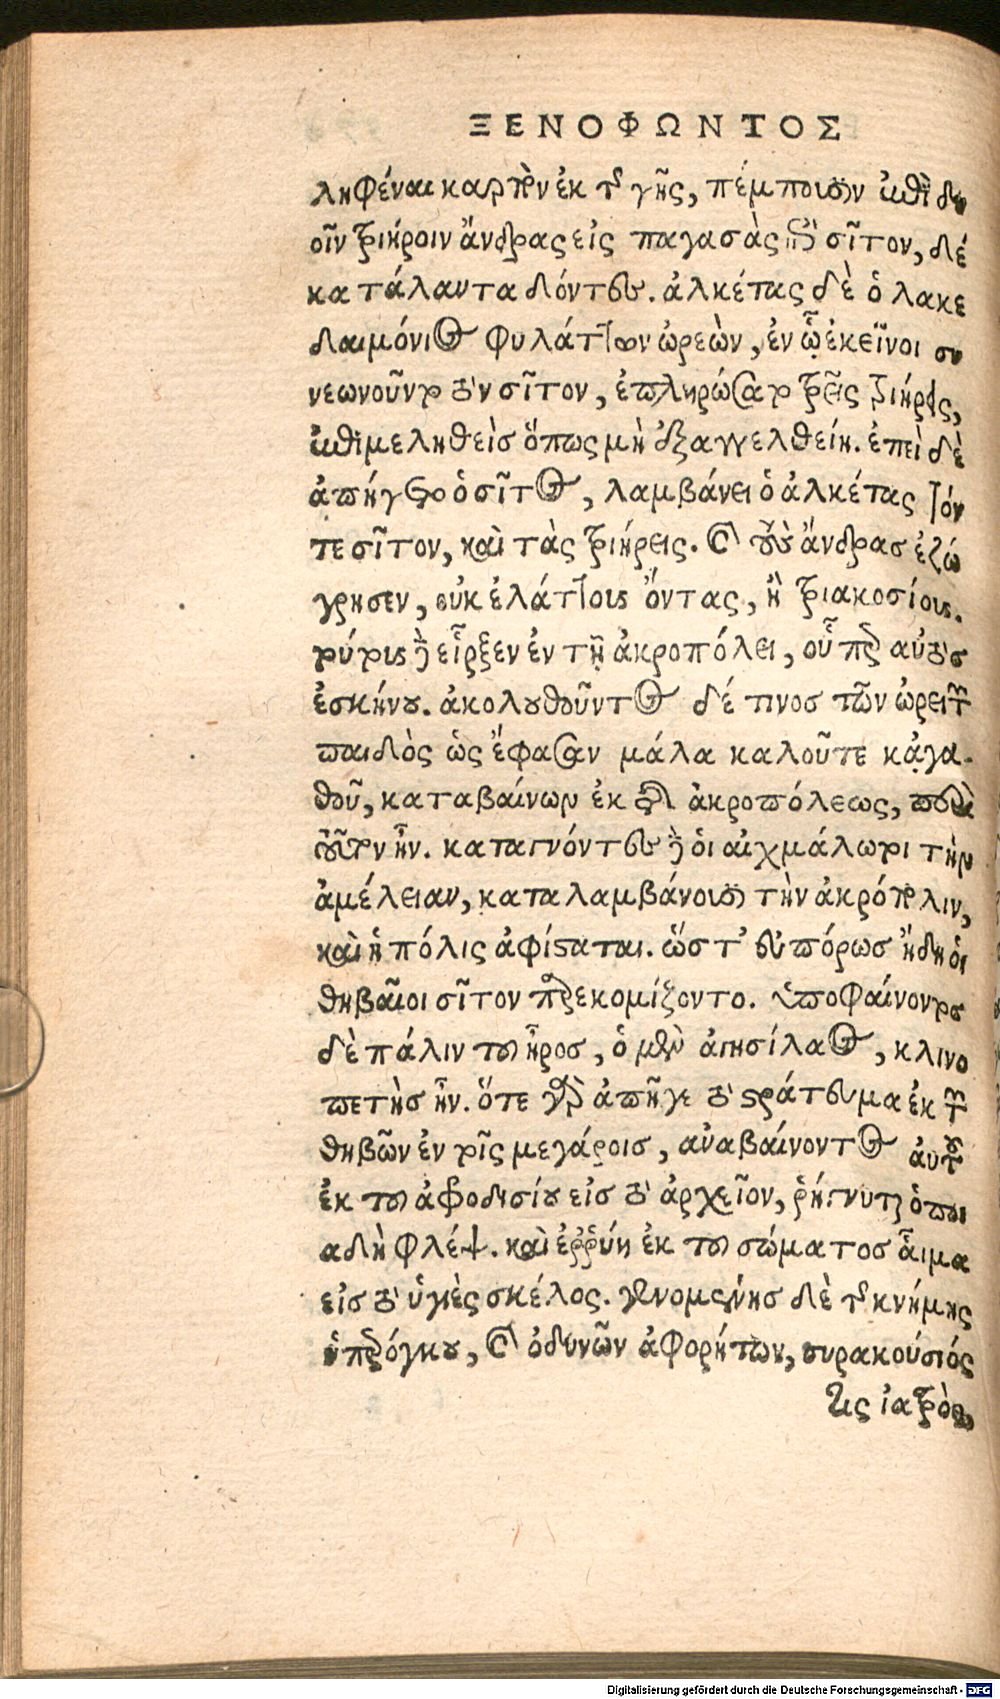 ΞΕΝΟΦΩΝΤΟΣ
ληφέναι καρπὸν ἐκ τῆς γῆς, πέμπουσιν ἐπὶ δυ
οῖν τριήροιν ἄνδρας εἰς παγασὰς ἐπὶ σῖτον, δέ
κα τάλαντα δόντες. ἀλκέτας δὲ ὁ λακε
δαιμόνιος φυλάττων ὠρεὼν, ἐν ᾧ ἐκεῖνοι συ
νεωνοῦντο τὸν σῖτον, ἐπληρώσατο τρεῖς τριήρεις,
ἐπιμεληθεὶς ὅπως μὴ ἐξαγγελθείη. ἐπεὶ δὲ
ἀπήγετο ὁ σῖτος, λαμβάνει ὁ ἀλκέτας τόν
τε σῖτον, καὶ τὰς τριήρεις. καὶ τοὺς ἄνδρας ἐζώ
γρησεν, οὐκ ἐλάττους ὄντας, ἢ τριακοσίους.
τούτους δὲ εἷρξεν ἐν τῇ ἀκροπόλει, οὗπερ αὐτὸς
ἐσκήνου. ἀκολουθοῦντος δέ τινος τῶν ὠρειτῶν
παιδὸς ὡς ἔφασαν μάλα καλοῦτε κἀγα-
θοῦ, καταβαίνων ἐκ τῆς ἀκροπόλεως, περὶ
τοῦτον ἦν. καταγνόντες δὲ οἱ αἰχμάλωτοι τὴν
ἀμέλειαν, καταλαμβάνουσι τὴν ἀκρόπολιν,
καὶ ἡ πόλις ἀφίσταται. ὥστ' εὐπόρως ἤδη οἱ
θηβαῖοι σῖτον παρεκομίζοντο. ὑποφαίνοντος
δὲ πάλιν τοῦ ἦρος, ὁ μὲν ἀγησίλαος, κλινο
πετὴς ἦν. ὅτε γὰρ ἀπῆγε τὸ στράτευμα ἐκ τῶν
θηβῶν ἐν τοῖς μεγάροις, ἀναβαίνοντος αὐτοῦ
ἐκ τοῦ ἀφροδισίου εἰς τὸ ἀρχεῖον, ῥήγνυται ὁποι
αδὴ φλέψ. καὶ ἐῤῥύη ἐκ τοῦ σώματος αἷμα
εἰς τὸ ὑγιὲς σκέλος. γενομένης δὲ τῆς κνήμης
ὑπερόγκου, καὶ ὀδυνῶν ἀφορήτων, συρακούσιός
τις ἰατρὸς
Digitalisierung gefördert durch die Deutsche Forschungsgemeinschaft - DFG